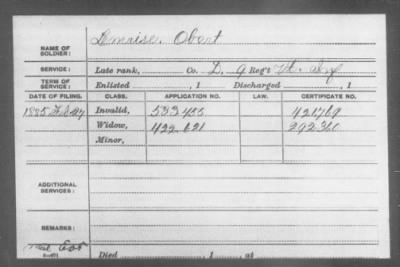 NAME OF SOLDIER: Dennise. Obert
SERVICE: Late rank, Co. D, 9 Reg't Vt. Inf
TERM OF SERVICE: Enlisted , 1 Discharged , 1
DATE OF FILING. CLASS. APPLICATION NO. LAW. CERTIFICATE NO.
1885 Feb 27 Invalid, 533 455 421769
Widow, 422.621 292360
Minor,
ADDITIONAL SERVICES:
REMARKS:
Died , 1 , at